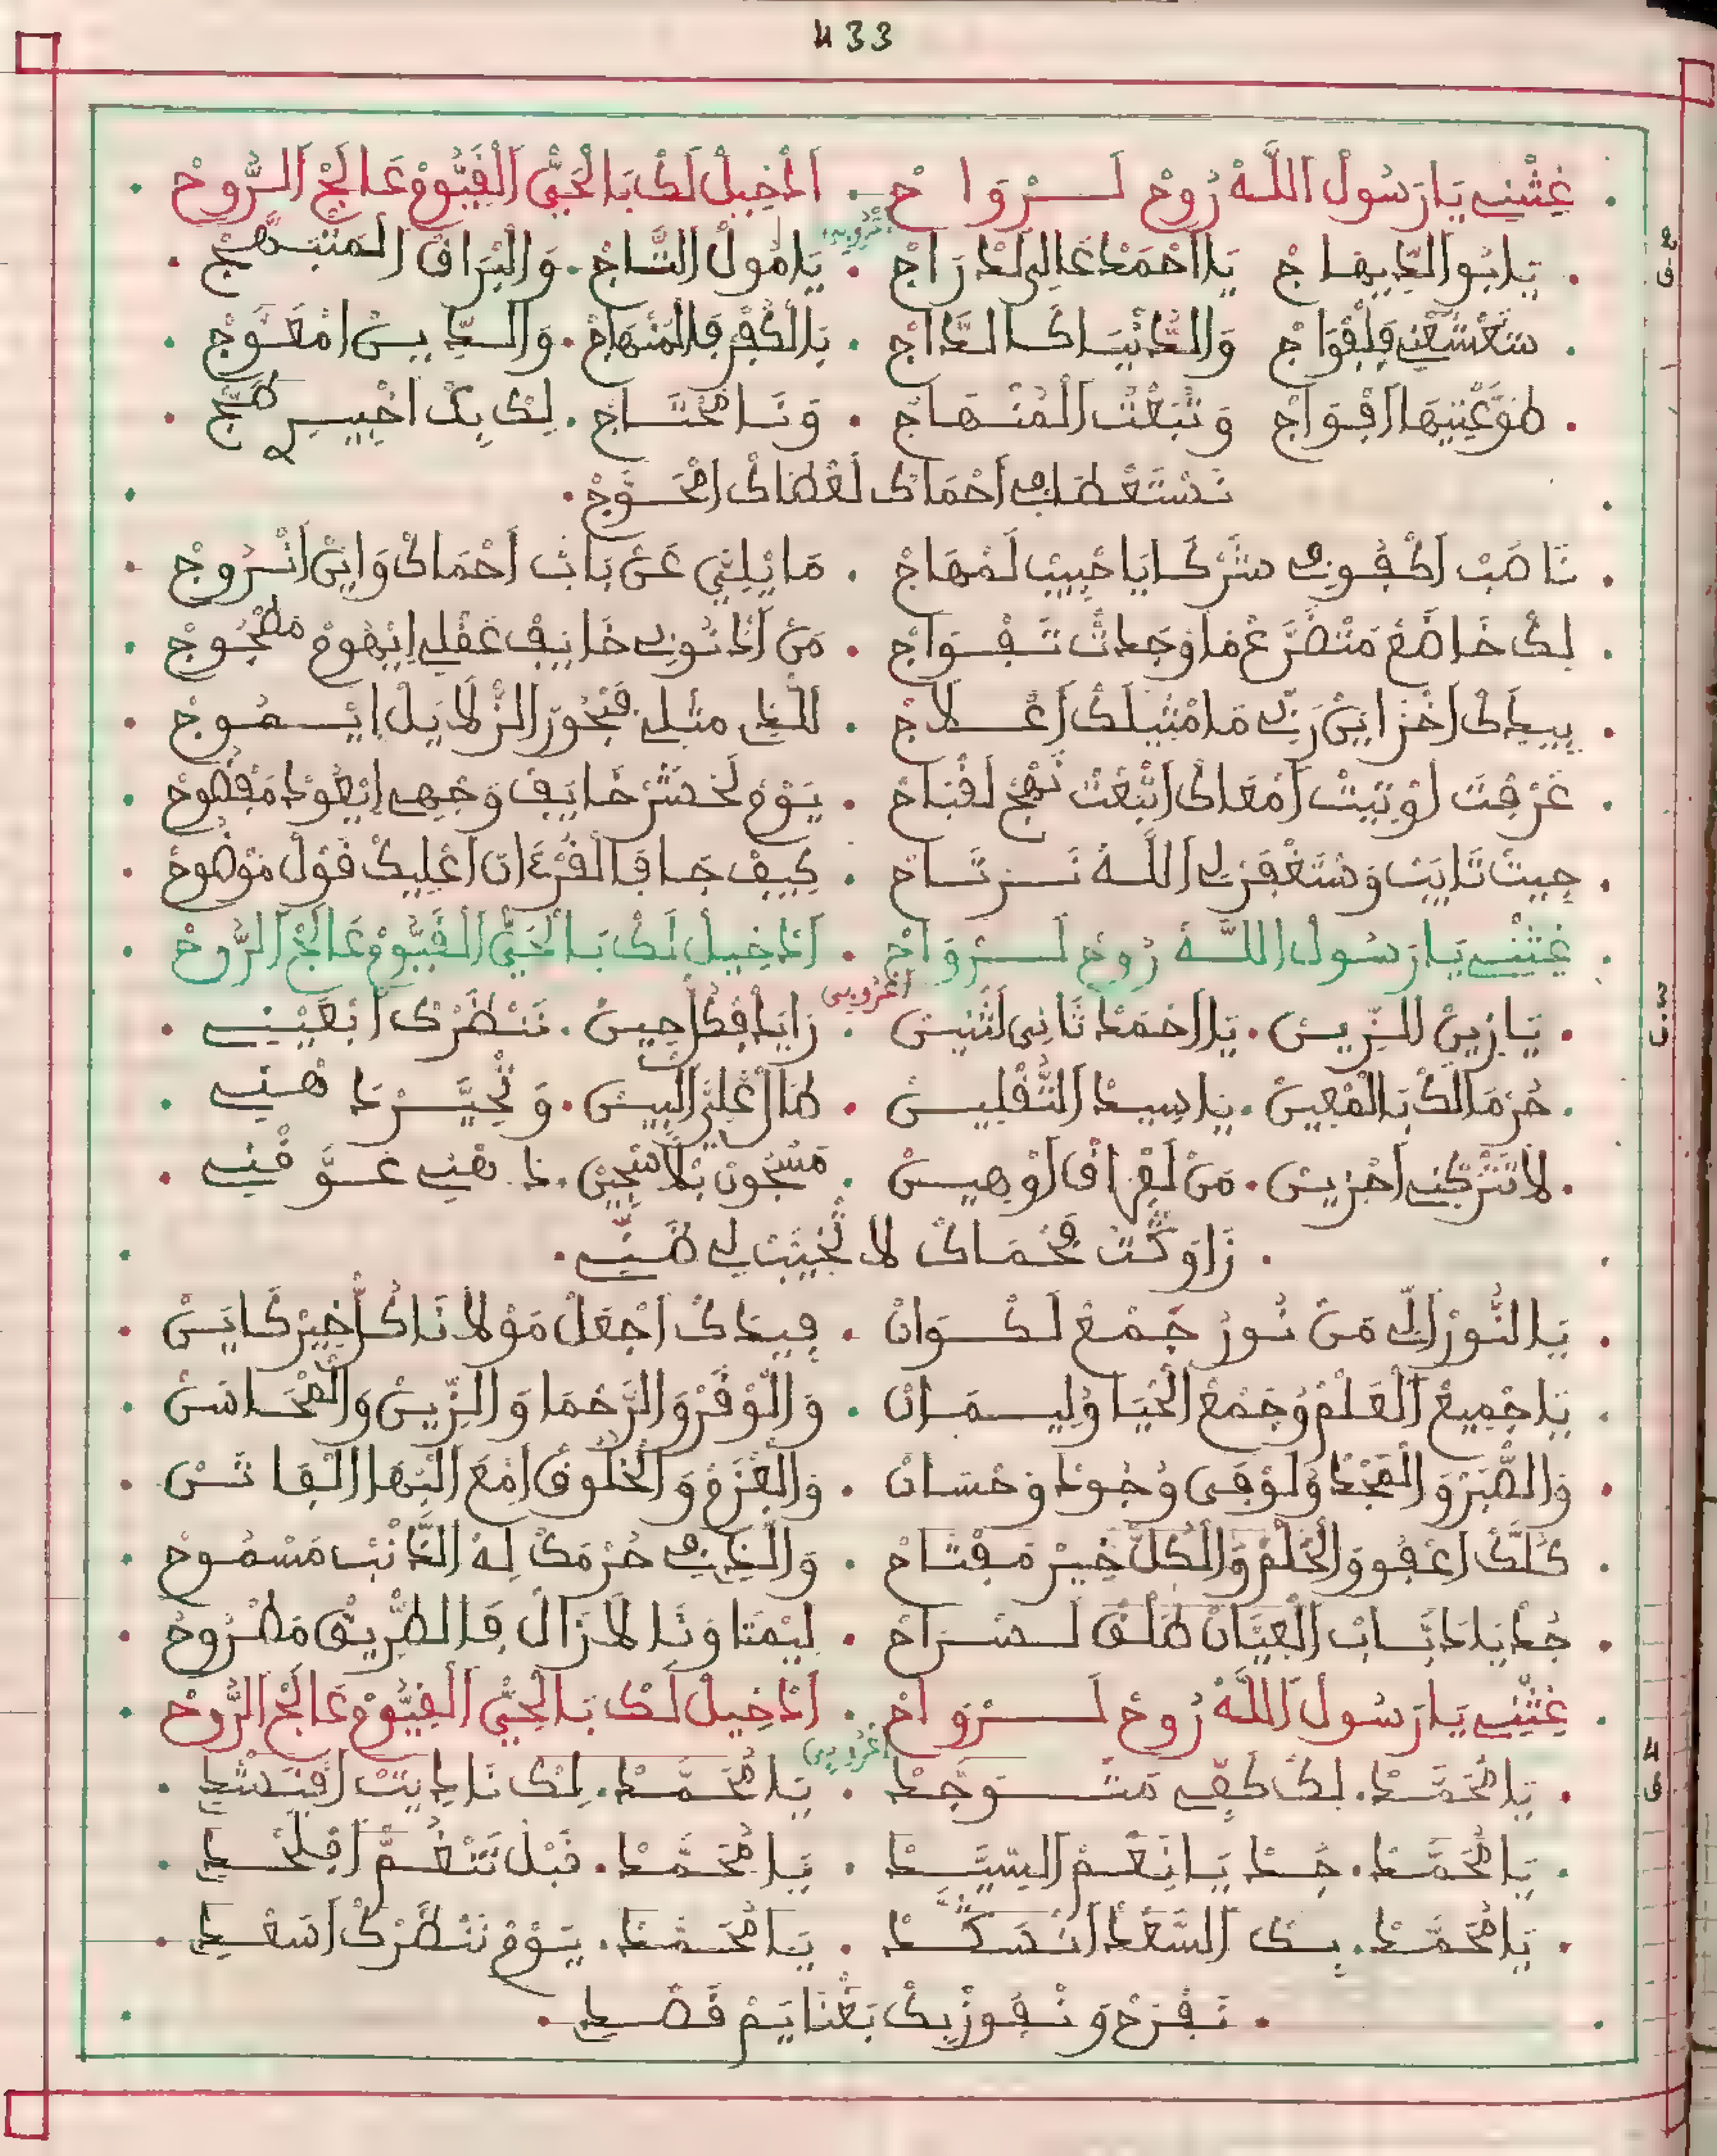 433
غِثْنِي يَا رَسُولْ اَللَّهْ رُوحْ لَــرْوَاحْ . اَدْخِيلْ لَكْ بَالْحَيِّ اَلْقَيُّومْ عَالَجْ اَلرُّوحْ
2 ق
عْرُوبِي
يَا بُو الدِّيبَاجْ يَا اَحْمَدْ عَالِي لَدْرَاجْ . يَا مُولْ اَلتَّاجْ . وَالْبَرَاقْ اَلْمَتْبَهَّجْ
شَعْشَعْتِي فَلْفْوَاجْ وَالدَّنْيَا كَالدَّاجْ . بَالْكُفْرْ فَالْمَنْهَاجْ . وَالدِّينْ امْعَوَّجْ
طَوَّعْتِيهَا اَفْوَاجْ وَتْبَعْتْ اَلْمَنْهَاجْ . وَنَا مَحْتَاجْ . لِكْ بِكْ
نَسْتَعْطَابْ اَحْمَاكْ لَعْطَاكْ اَمْحَوَّجْ
نَاصَبْ اَكْفُوفِي شَرْكَا يَا حْبِيبْ لَمْهَاجْ . مَا يْلِنِّي عَنْ بَابْ اَحْمَاكْ وَايْنْ اَنْرُوجْ
لِكْ خَاضَعْ مَتْضَرَّعْ مَا وْجَدْتْ تَفْوَاجْ . مَنْ اَدْنُوبِي خَايَفْ عَقْلِي اِيْهُومْ
بِيدَكْ اَخْزَايَنْ رَبِّي مَا مْثِيلَكْ اَعْــلَاجْ . لَلَّدِي مَثْلِي فَبْحُورْ الزّْلَا يَلْ اِيْــمُوجْ
عَرْفَتْ اَوْتِيتْ اَمْعَاكْ اَتْبَعْتْ نَهْجْ لَقْبَاحْ . يَوْمْ لَحْشَرْ خَايَفْ وَجْهِي اِيْعُودْ مَفْضُوحْ
جِيتْ تَايَبْ وَسْتَغْفَرْ لِي اَللَّهْ نَــرْتَــاحْ . كِيفْ جَا فَالْقُرْءَانْ اَعْلِيكْ قَوْلْ مَوْضُوحْ
غِثْنِي يَا رَسُولْ اَللَّهْ رُوحْ لَــرْوَاحْ . اَدْخِيلْ لَكْ بَالْحَيِّ اَلْقَيُّومْ عَالَجْ اَلرُّوحْ
3 ق
اَعْرُوبِي
يَا زِينْ الزِّينْ . يَا اَحْمَدْ ثَانِي لَثْنِينْ . رَايَدْ فَكُلّْ حِينْ . نَنْظْرَكْ اَبْعَيْنِي
حُرْمَالَكْ بَالْمْعِينْ . يَا سِيدْ اَلثَّقْلِينْ . طَالْ عْلِيَّ اَلْبِينْ . وَتْحَيَّــرْ دَهْنِي
لَا تَتَّرْكْنِي اَحْزِينْ . مَنْ لَفْرَاقْ اَوْهِينْ . مَسْجُونْ بْلَا سْجِينْ . دَا هْنِي عَــوَّقْنِي
زَاوَكْتْ فَحْمَاكْ لَا تْخَيَّبْ لِي ظَنِّي
يَا النُّورْ اَلِّي مَنْ نُورْ جَمْعْ لَكْــوَانْ . فِيدَكْ اَجْعَلْ مَوْلَانَا كُلّْ خِيرْ كَايَنْ
يَا جْمِيعْ اَلْعَلْمْ وُجَمْعْ اَلْحَيَا وُلِيــمَــانْ . وَالْوْقَرْ وَالرَّحْمَا وَالزِّينْ وَالْمْحَــاسَنْ
وَالصَّبَرْ وَالْمَجْدْ وَلَوْفَى وُجُودْ وَحْسَانْ . وَالْعَزَمْ وَالْخَلُوقْ اَمْعَ اَلْبْهَا الْفَاتَــنْ
كَلَّكْ اَعْفُو وَالْحَلْمْ وَالْكُلّْ خِيرْ مَفْتَاحْ . وَالَّدِي فِي حُرْمَكْ لَهْ الدَّنْبْ مَسْمُوحْ
جُدْ يَا دَبَّــابْ اَلْعِيَّانْ طَلْقْ لَــسْــرَاحْ . لِيمْتَا وَنَا لَازَالْ فَالطّْرِيقْ مَطْرُوحْ
غِثْنِي يَا رَسُولْ اَللَّهْ رُوحْ لَــرْوَاحْ . اَدْخِيلْ لَكْ بَالْحَيِّ اَلْقَيُّومْ عَالَجْ الرُّوحْ
4 ق
اَعْرُوبِي
يَا مُحَمَّــدْ . لِكْ كَفِّي مَتْــوَجَّدْ . يَا مُحَمَّــدْ . لِكْ نَادِيتْ اَفْنَشْدِي
يَا مُحَمَّــدْ . جُــدْ يَا نِعْــمْ اَلسِّيَّــدْ . يَا مُحَمَّــدْ . قَبْلْ نَنْغَمّْ اَفْلَحْــدِي
يَا مُحَمَّــدْ . بِــكْ اَلسَّعْدْ اَنْسَگَّــدْ . يَا مُحَمَّــدْ . يَوْمْ نَنْظْرَكْ اَسَعْــدِي
نَفْرَحْ وَنْــفُوزْ بِكْ بَغْنَايَمْ قَصْــدِي